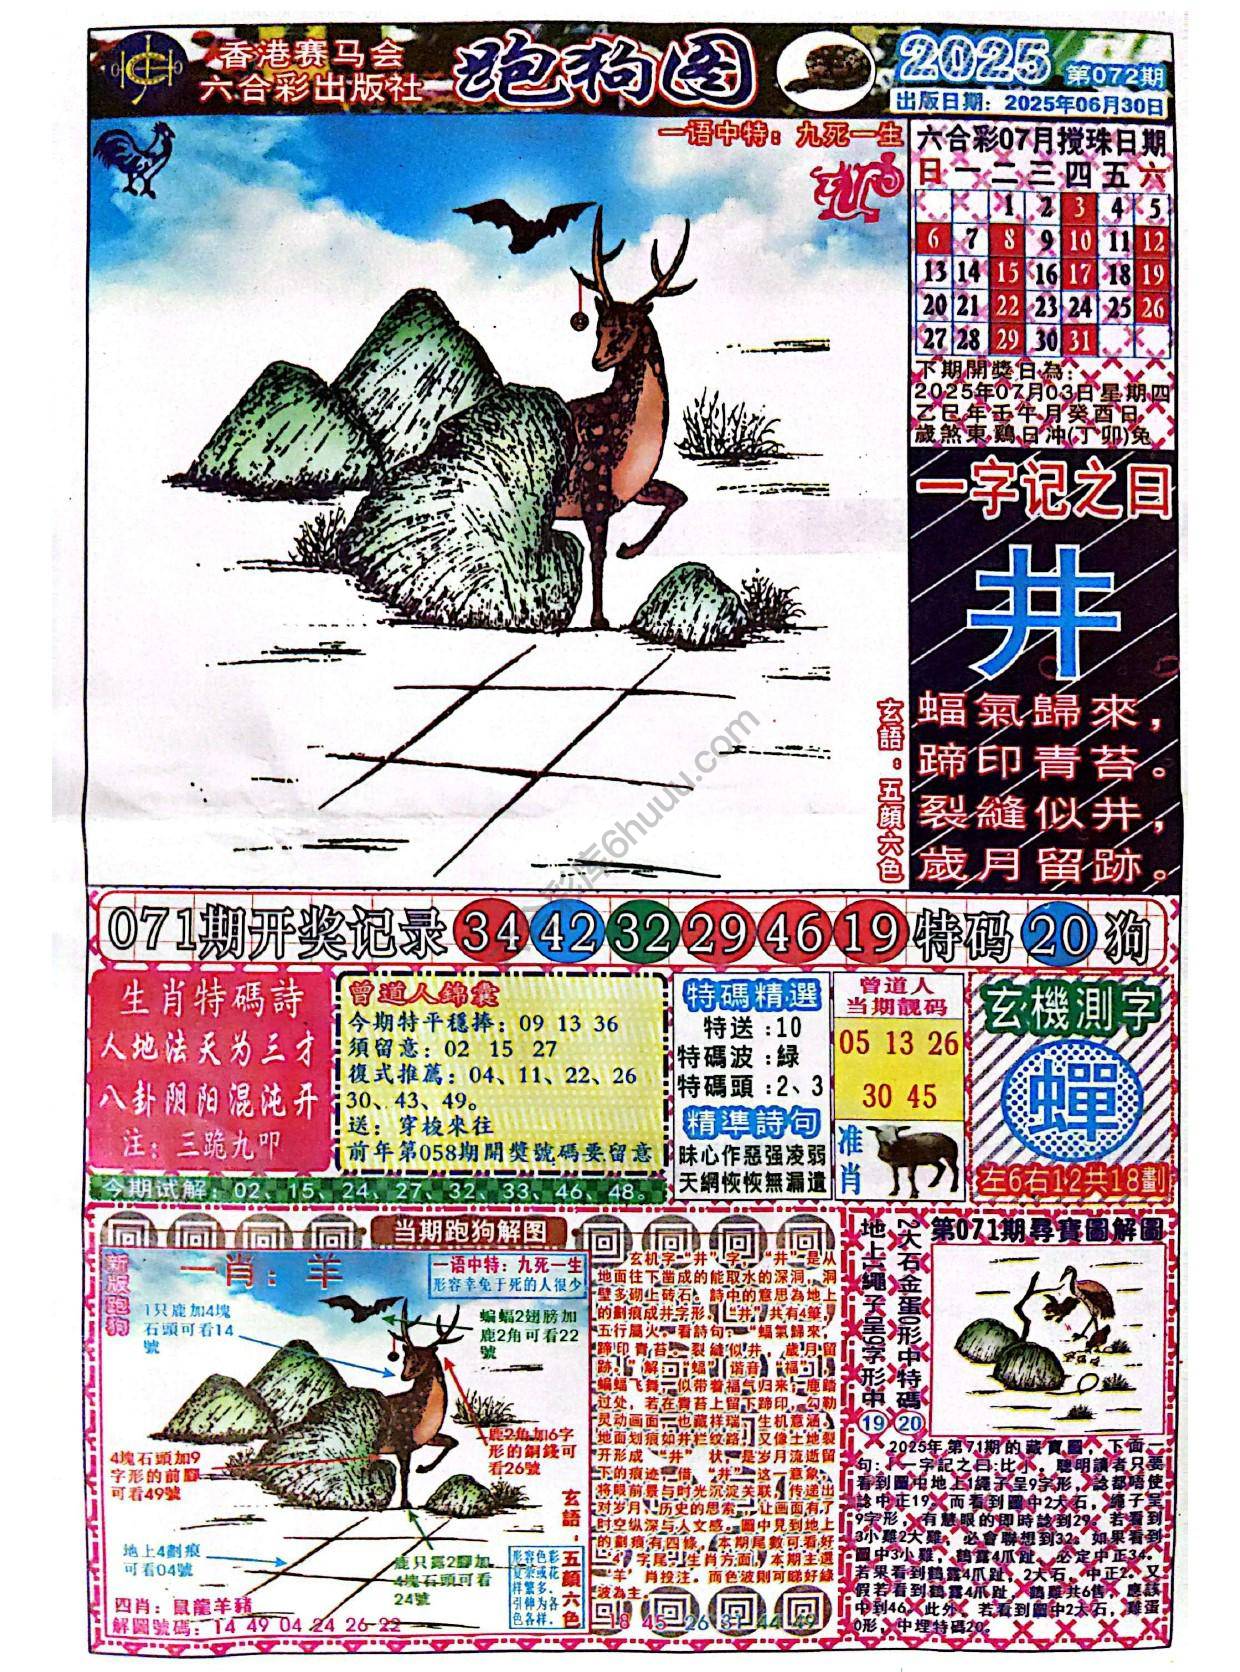 香港赛马会
六合彩出版社
跑狗图
2025
第072期
出版日期：2025年06月30日
一语中特：九死一生
六合彩07月搅珠日期
日一二三四五六
1 2 3 4 5
6 7 8 9 10 11 12
13 14 15 16 17 18 19
20 21 22 23 24 25 26
27 28 29 30 31
下期開獎日為：
2025年07月03日星期四
乙巳年壬午月癸酉日
歲煞東鷄日沖(丁卯)兔
一字记之曰
井
玄語：五顔六色
蝠氣歸來，
蹄印青苔。
裂縫似井，
歲月留跡。
彩库6huuu.com
071期开奖记录 34 42 32 29 46 19 特码 20 狗
生肖特碼詩
人地法天为三才
八卦阴阳混沌开
注：三跪九叩
曾道人錦囊
今期特平穩捧：09 13 36
須留意：02 15 27
復式推薦：04、11、22、26
30、43、49。
送：穿梭来往
前年第058期開獎號碼要留意
今期试解：02、15、24、27、32、33、46、48。
特碼精選
特送：10
特碼波：緑
特碼頭：2、3
精準詩句
昧心作惡强凌弱
天網恢恢無漏遺
曾道人
当期靓码
05 13 26
30 45
准肖
玄機測字
蟬
左6右12共18劃
当期跑狗解图
新版跑狗
一肖：羊
一语中特：九死一生
形容幸免于死的人很少
1只鹿加4塊
石頭可看14
號
蝙蝠2翅膀加
鹿2角可看22
號
鹿2角加6字
形的銅錢可
看26號
4塊石頭加9
字形的前腳
可看49號
地上4劃痕
可看04號
鹿只露2腳加
4塊石頭可看
24號
玄語：五顔六色
形容色彩
复杂或花
样繁多。
引伸为各
色各样。
四肖：鼠龍羊豬
解圖號碼：14 49 04 24 26-22
玄机字“井”字，“井”是从
地面往下凿成的能取水的深洞，洞
壁多砌上砖石。詩中的意思為地上
的劃痕成井字形。“井”共有4筆，
五行屬火。看詩句：“蝠氣歸來，
蹄印青苔。裂縫似井，歲月留
跡。”解：“蝠”谐音“福”，
蝙蝠飞舞，似带着福气归来；鹿踏
过处，若在青苔上留下蹄印，勾勒
灵动画面，也藏祥瑞、生机意涵。
地面划痕如井栏纹路，又像土地裂
开形成“井”状，是岁月流逝留
下的痕迹，借“井”这一意象，
将眼前景与时光沉淀关联，传递出
对岁月、历史的思索，让画面有了
时空纵深与人文感。圖中見到地上
的劃痕有四條，本期尾數可看好
‘4’字尾，生肖方面，本期主選
‘羊’肖投注。而色波則可睇好綠
波為主。
18 45 26 31 44 49
第071期尋寶圖解圖
地上1繩子呈9字形中⑲
2大石金蛋0形中特碼⑳
2025年第71期的藏寶圖，下面一
句：「一字記之曰:比小。聰明讀者只要
看到圖中地上1繩子呈9字形，諗都唔使
諗中正19。而看到圖中2大石，繩子呈
9字形，有慧眼的即時諗到29。若看到
3小雞2大雞，必會聯想到32。如果看到
圖中3小雞，鶴露4爪趾，必定中正34。
若果看到鶴露4爪趾，2大石，中正2。又
假若看到鶴露4爪趾，鶴雞共6隻，應該
中到46。此外。若看到圖中2大石，雞蛋
0形，中埋特碼20。